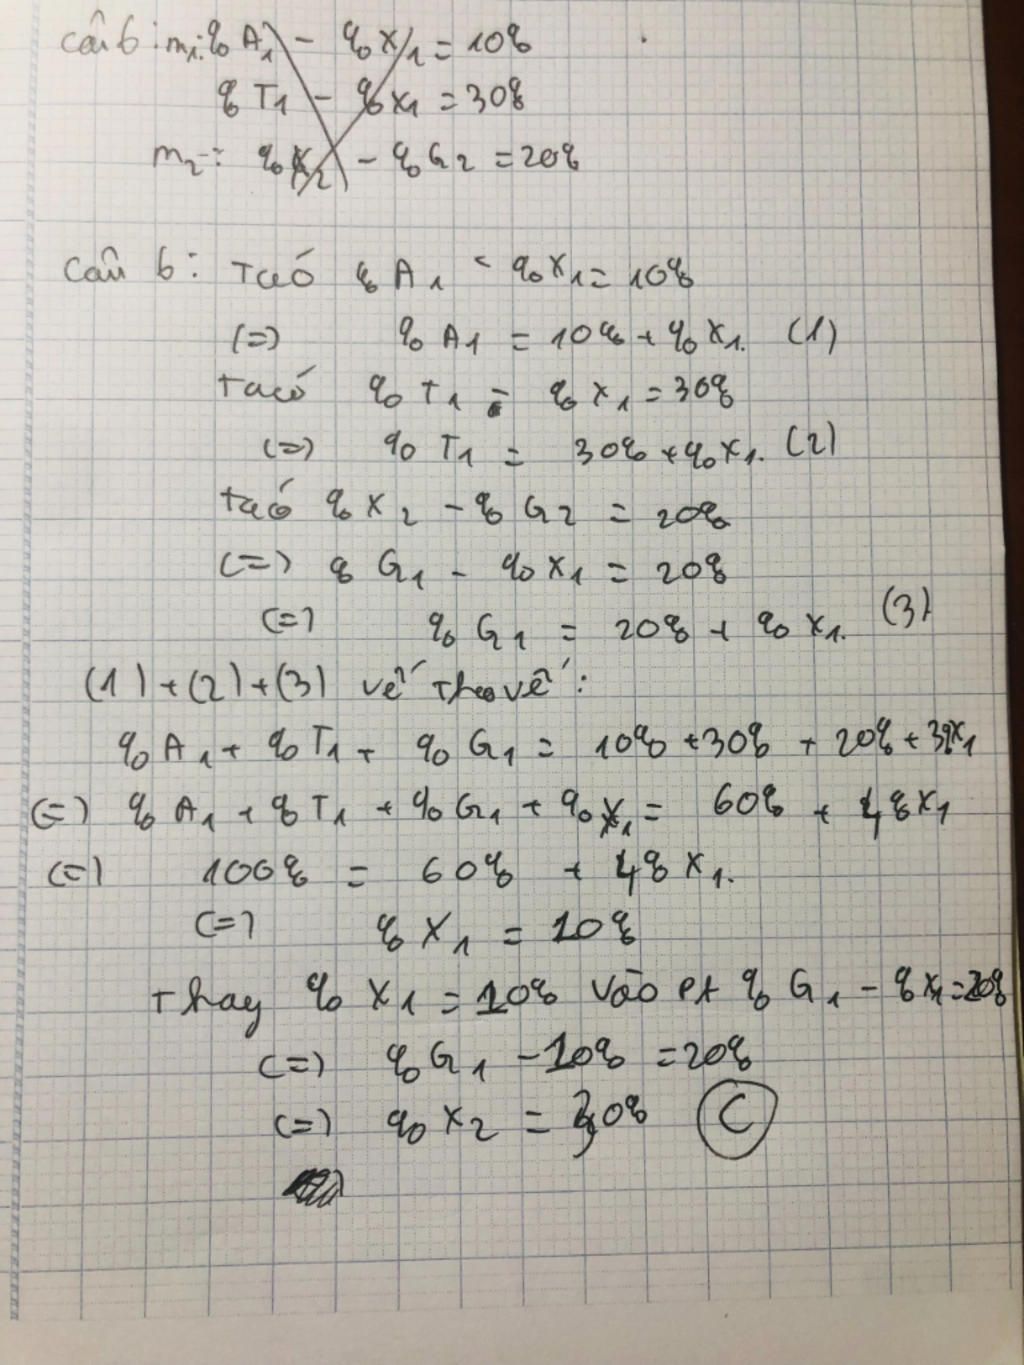 Câu 6: m₁: % A₁ - % X₁ = 10%
% T₁ - % X₁ = 30%
m₂: % X₂ - % G₂ = 20%
Câu 6: Ta có % A₁ - % X₁ = 10%
(=) % A₁ = 10% + % X₁. (1)
Ta có % T₁ - % X₁ = 30%
(=) % T₁ = 30% + % X₁. (2)
Ta có % X₂ - % G₂ = 20%
(=) % G₁ - % X₁ = 20%
(=) % G₁ = 20% + % X₁. (3)
(1) + (2) + (3) vế theo vế:
% A₁ + % T₁ + % G₁ = 10% + 30% + 20% + 3%X₁
(=) % A₁ + % T₁ + % G₁ + % X₁ = 60% + 4% X₁
(=) 100% = 60% + 4% X₁.
(=) % X₁ = 10%
Thay % X₁ = 10% vào pt % G₁ - % X₁ = 20%
(=) % G₁ - 10% = 20%
(=) % X₂ = 30% C